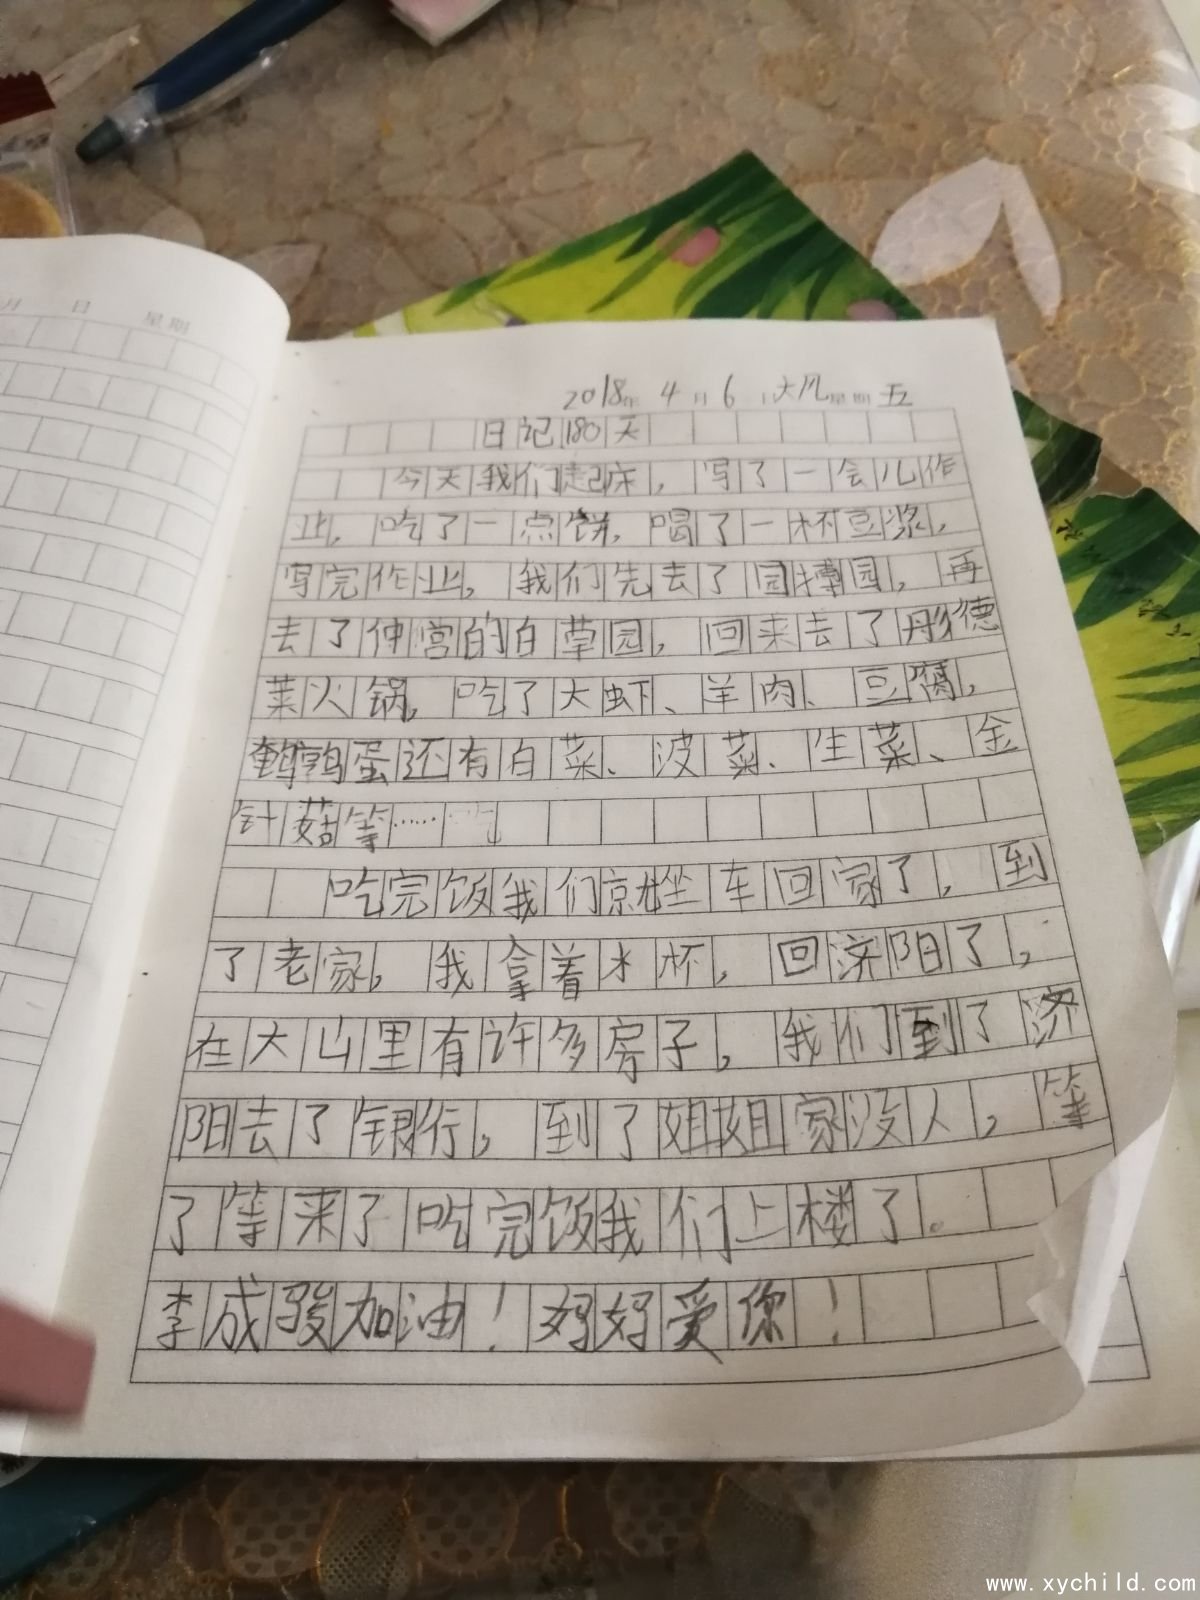 月 日 星期
2018年 4月6日大风星期五
日记180天
今天我们起床，写了一会儿作
业，吃了一点饼，喝了一杯豆浆，
写完作业，我们先去了园搏园，再
去了仲宫的白草园，回来去了彤德
莱火锅，吃了大虾、羊肉、豆腐，
鹌鹑蛋还有白菜、波菜、生菜、金
针菇等……
吃完饭我们就坐车回家了，到
了老家，我拿着水杯，回济阳了，
在大山里有许多房子，我们到了济
阳去了银行，到了姐姐家没人，等
了等来了吃完饭我们上楼了。
李成骏加油！妈妈爱你！
www.xychild.com